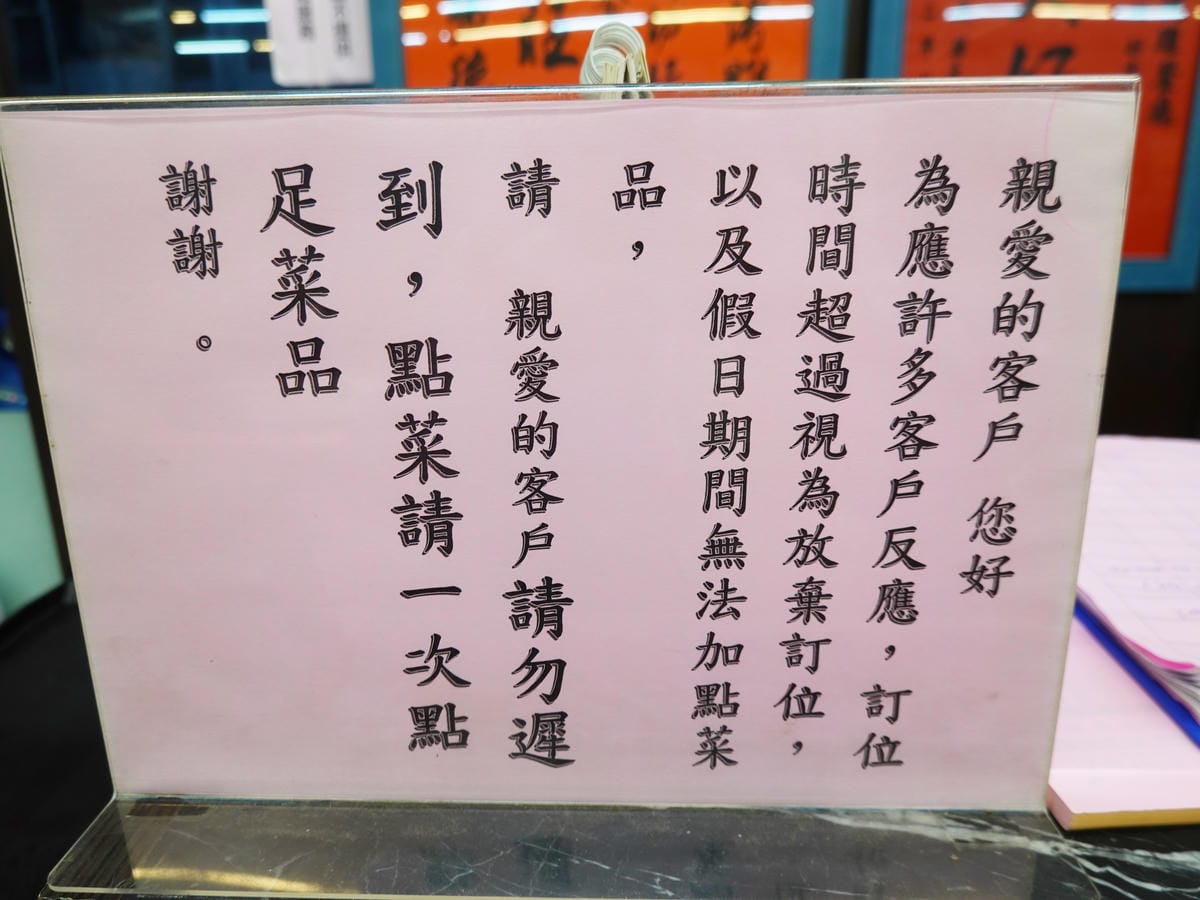 親愛的客戶 您好
為應許多客戶反應，訂位
時間超過視為放棄訂位，
以及假日期間無法加點菜
品，
請 親愛的客戶請勿遲
到，點菜請一次點
足菜品
謝謝。